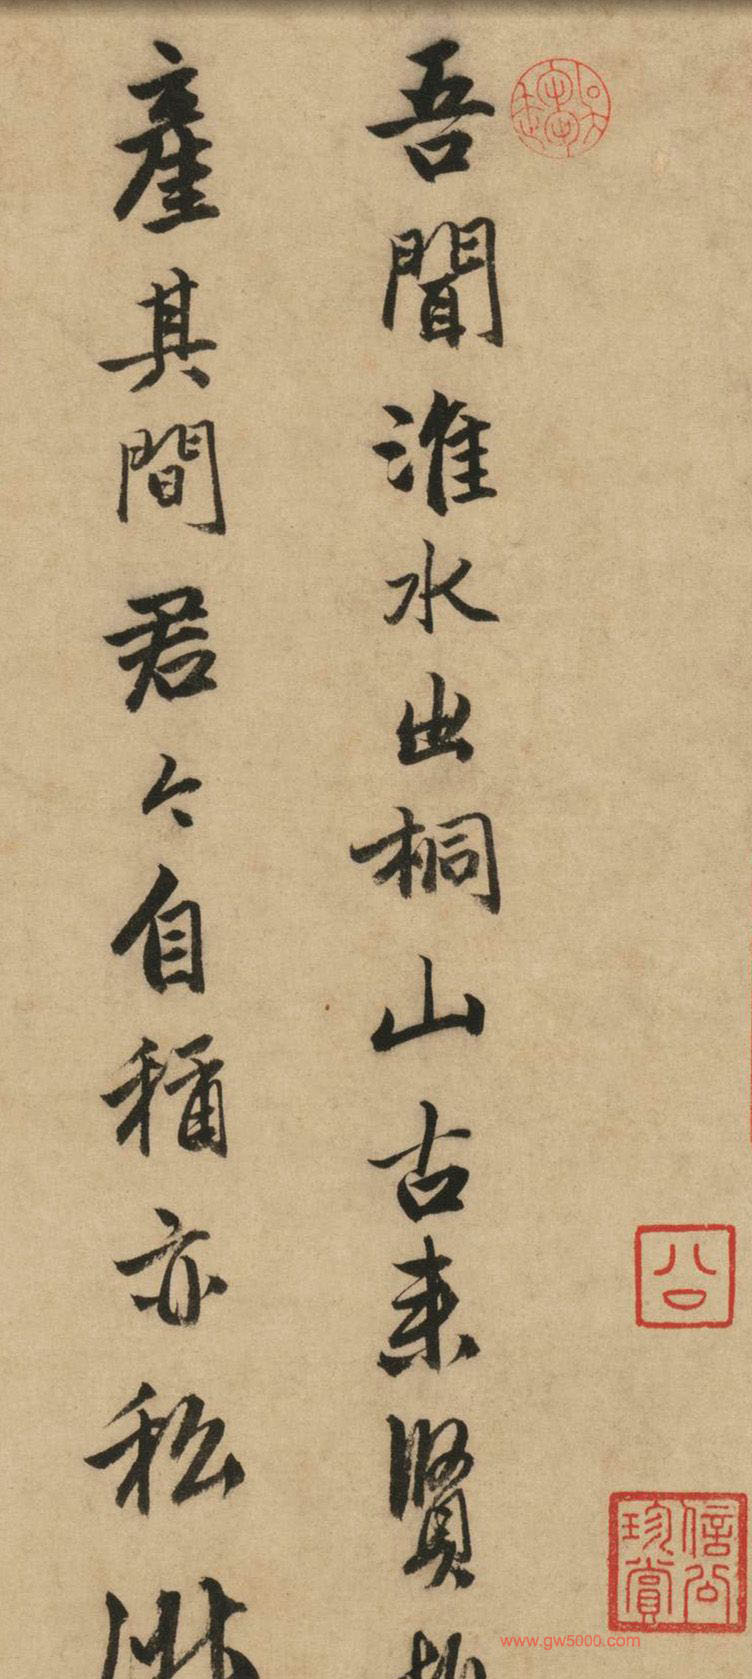 吾聞淮水出桐山古来賢
產其間君々自稱亦私
公
信公珍賞
www.gw5000.com